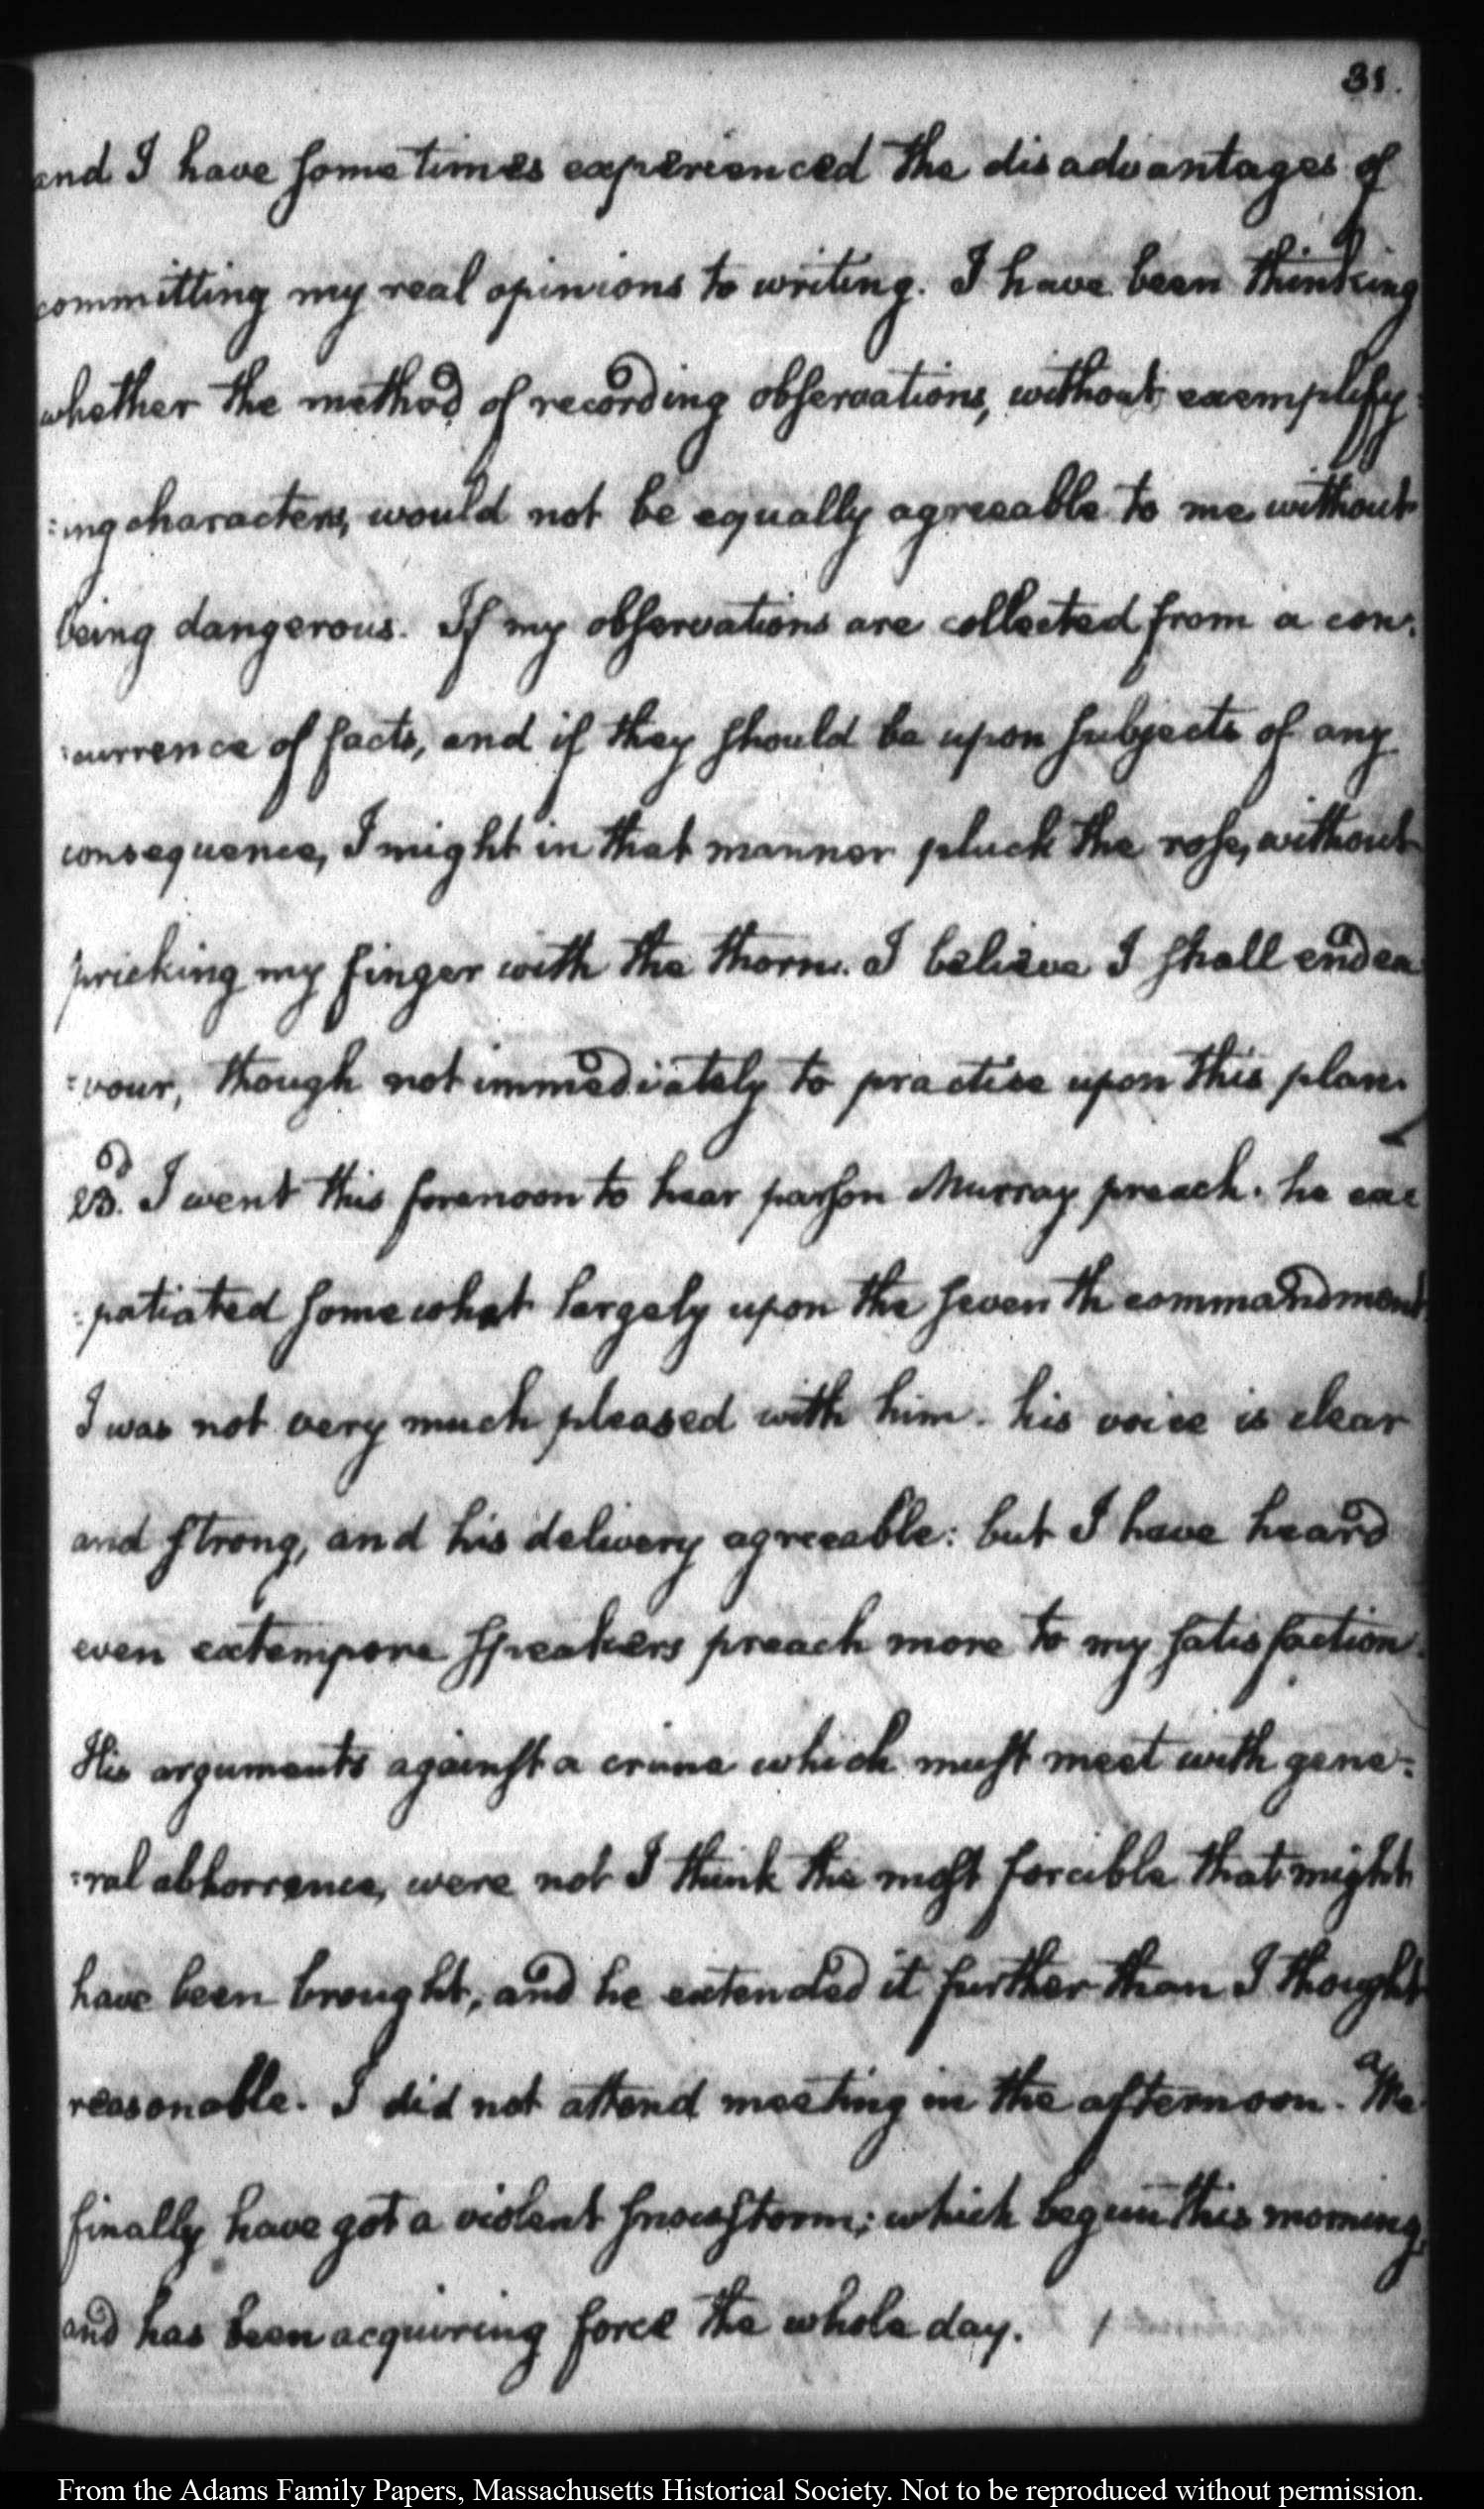 31.
and I have sometimes experienced the disadvantages of
committing my real opinions to writing. I have been thinking
whether the method of recording observations, without exemplify-
:ing characters, would not be equally agreeable to me without
being dangerous. If my observations are collected from a con:
:currence of facts, and if they should be upon subjects of any
consequence, I might in that manner pluck the rose, without
pricking my finger with the thorn. I believe I shall endea
:vour, though not immediately to practise upon this plan.
23d. I went this forenoon to hear parson Murray preach. he ex:
:patiated somewhat largely upon the seventh commandment
I was not very much pleased with him. his voice is clear
and strong, and his delivery agreeable: but I have heard
even extempore speakers preach more to my satisfaction.
His arguments against a crime which must meet with gene:
:ral abhorrence, were not I think the most forcible that might
have been brought, and he extended it further than I thought
reasonable. I did not attend meeting in the afternoon. We
finally have got a violent snow storm; which begun this morning,
and has been acquiring force the whole day.
From the Adams Family Papers, Massachusetts Historical Society. Not to be reproduced without permission.